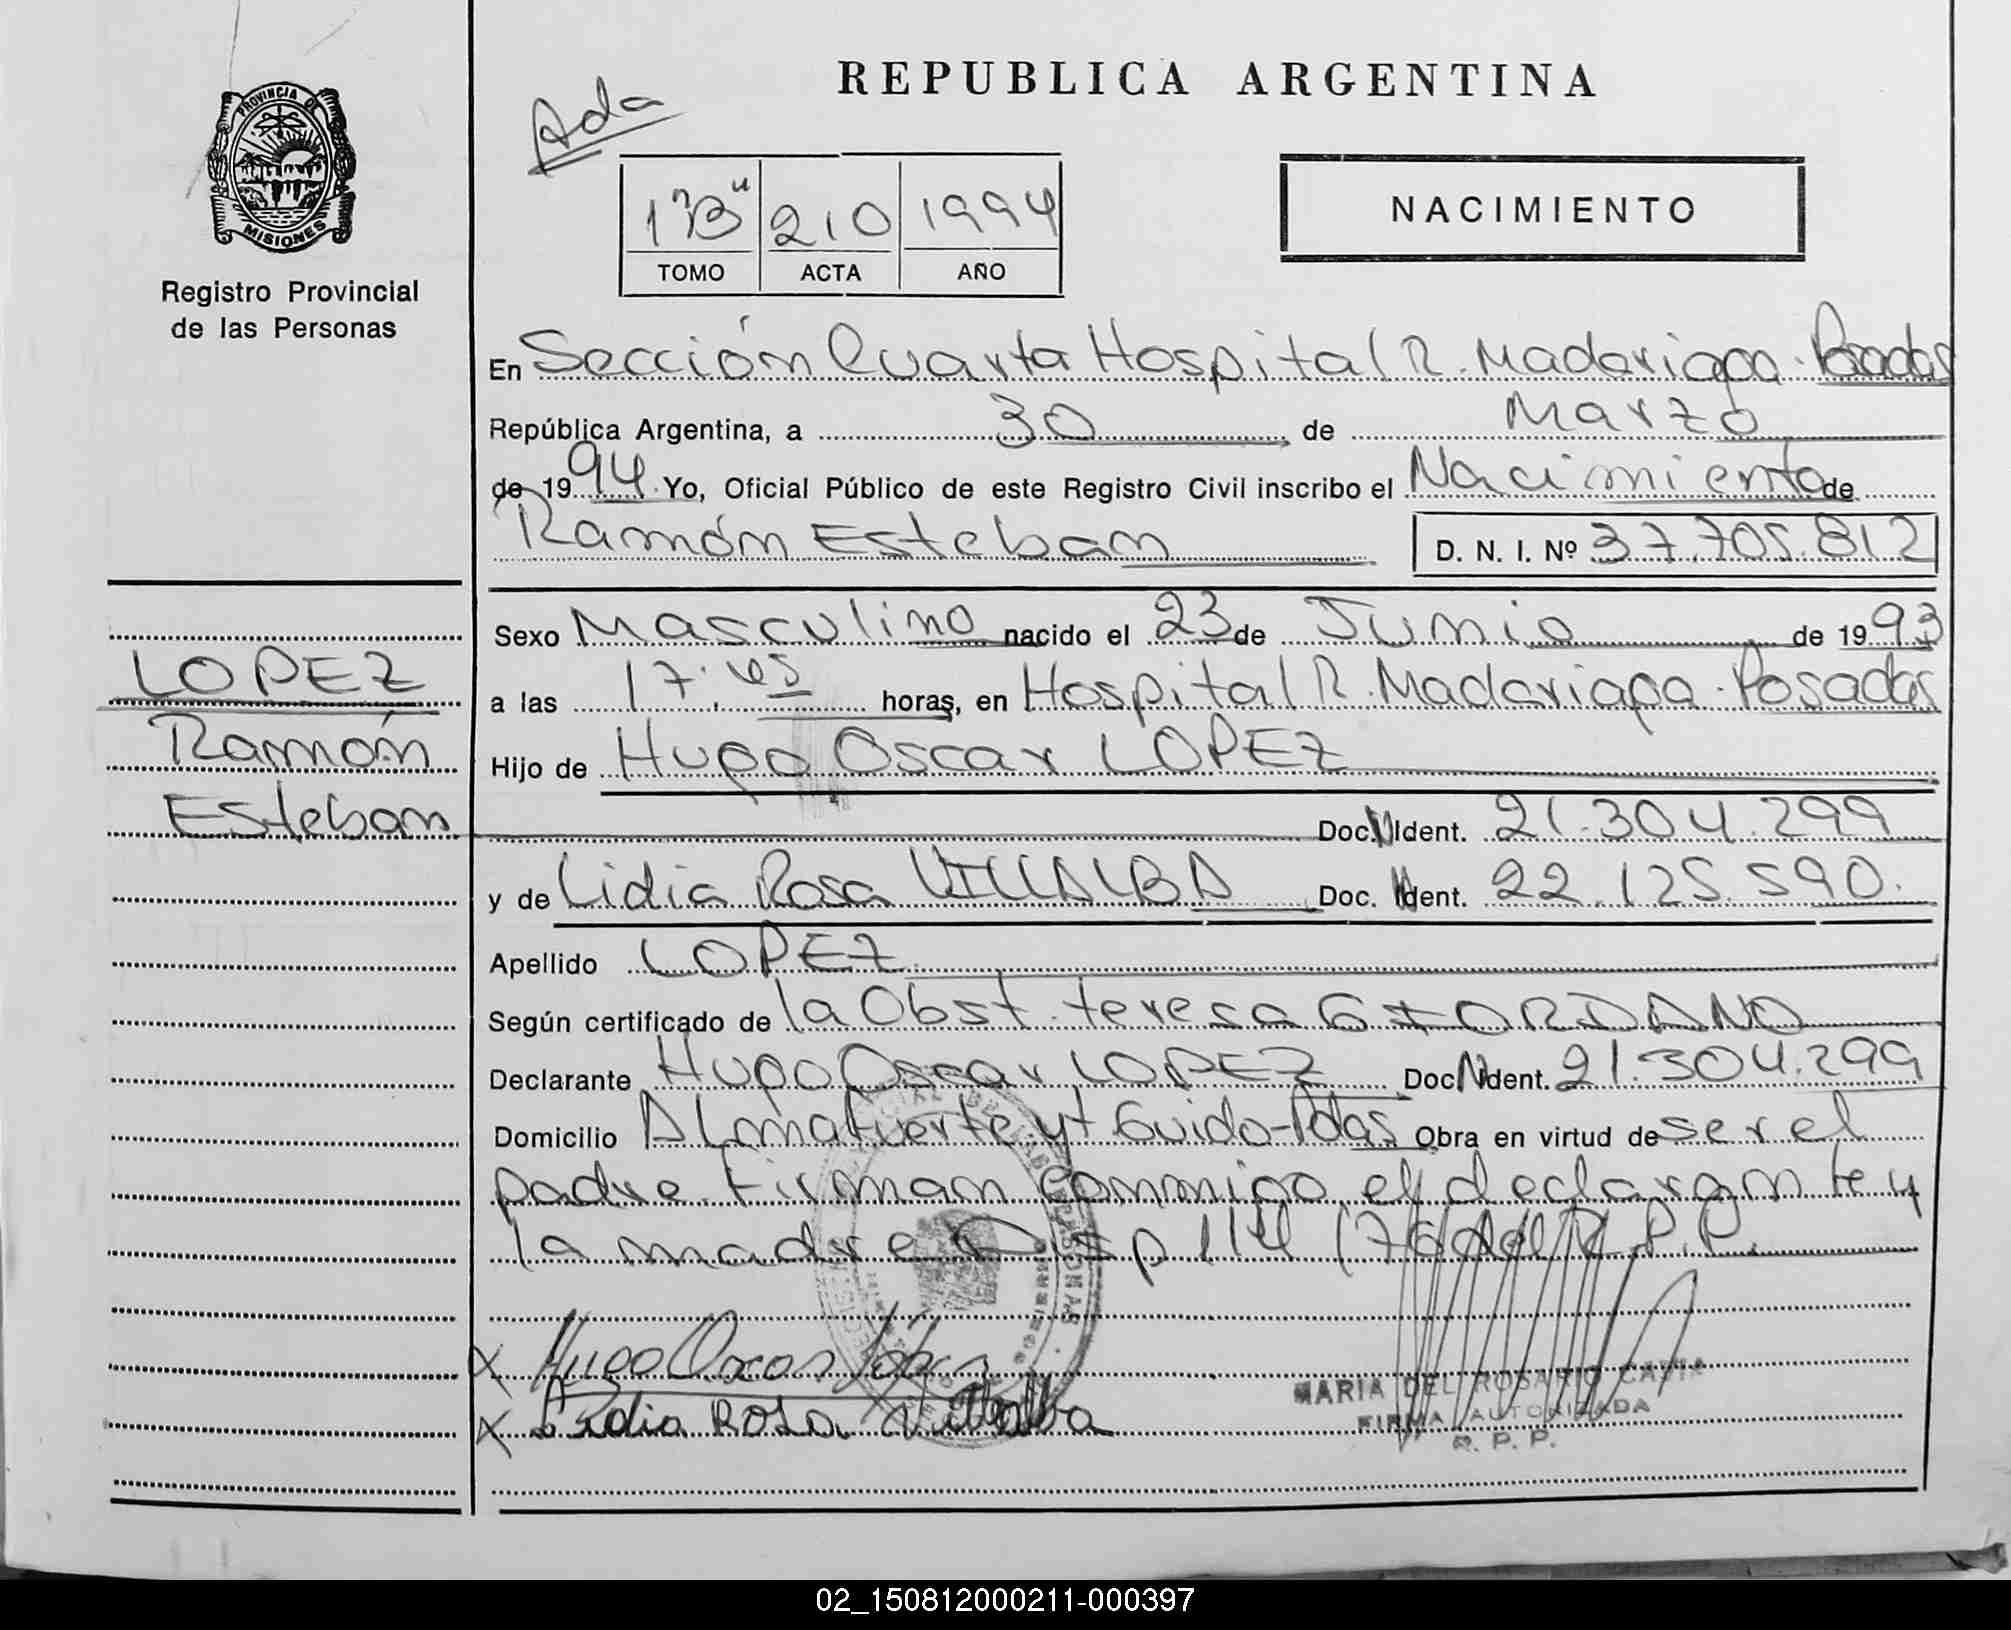 REPUBLICA ARGENTINA
Ada
PROVINCIA DE
MISIONES
Registro Provincial
de las Personas
1"B" 210 1994
TOMO ACTA AÑO
NACIMIENTO
En Sección Cuarta Hospital R. Madariaga. Posadas
República Argentina, a 30 de Marzo
de 1994 Yo, Oficial Público de este Registro Civil inscribo el Nacimiento de
Ramón Esteban D. N. I. Nº 37.705.812
Sexo Masculino nacido el 23 de Junio de 1993
LOPEZ
Ramón
Esteban
a las 17. horas, en Hospital R. Madariaga. Posadas
Hijo de Hugo Oscar LOPEZ
Doc. N Ident. 21.304.299
y de Lidia Rosa VILLALBA Doc. Ident. 22.125.590.
Apellido LOPEZ
Según certificado de la Obst. teresa GIORDANO
Declarante Hugo Oscar LOPEZ Doc N Ident. 21.304.299
Domicilio ALmafuerte y t Guido-Pdas Obra en virtud de ser el
padre. Firman conmigo el declarante y
la madre Disp 114 R.P.P.
Hugo Oscar López
Lidia ROSA Villalba
MARIA DEL ROSARIO
FIRMA AUTORIZADA
R. P. P.
02_150812000211-000397